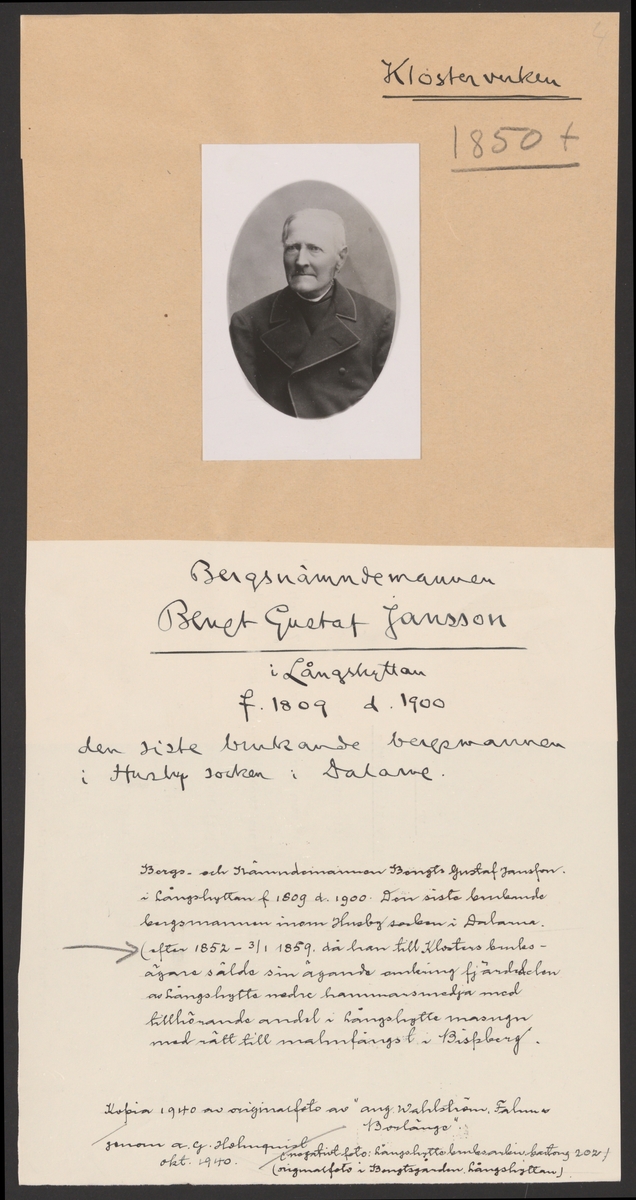 4
Klosterverken
1850 +
Bergsnämndemannen
Bengt Gustaf Jansson
i Långshyttan
f. 1809 d. 1900
den siste brukande bergsmannen
i Husby socken i Dalarne.
Bergs- och Nämndemannen Bengts Gustaf Jansson.
i Långshyttan f 1809 d. 1900. Den siste brukande
bergsmannen inom Husby socken i Dalarna.
(efter 1852 - 3/1 1859. då han till Klosters bruks-
ägare sålde sin ägande omkring fjärdedelen
av Långshytte nedre hammarsmedja med
tillhörande andel i Långshytte masugn
med rätt till malmfångst i Bispberg.
Kopia 1940 av originalfoto av "Aug. Wahlström, Falun o
Borlänge".
genom A. G. Holmquist
okt. 1940.
(negativt foto: Långshytte bruksarkiv, kartong 202)
(originalfoto i Bengtsgården, Långshyttan)